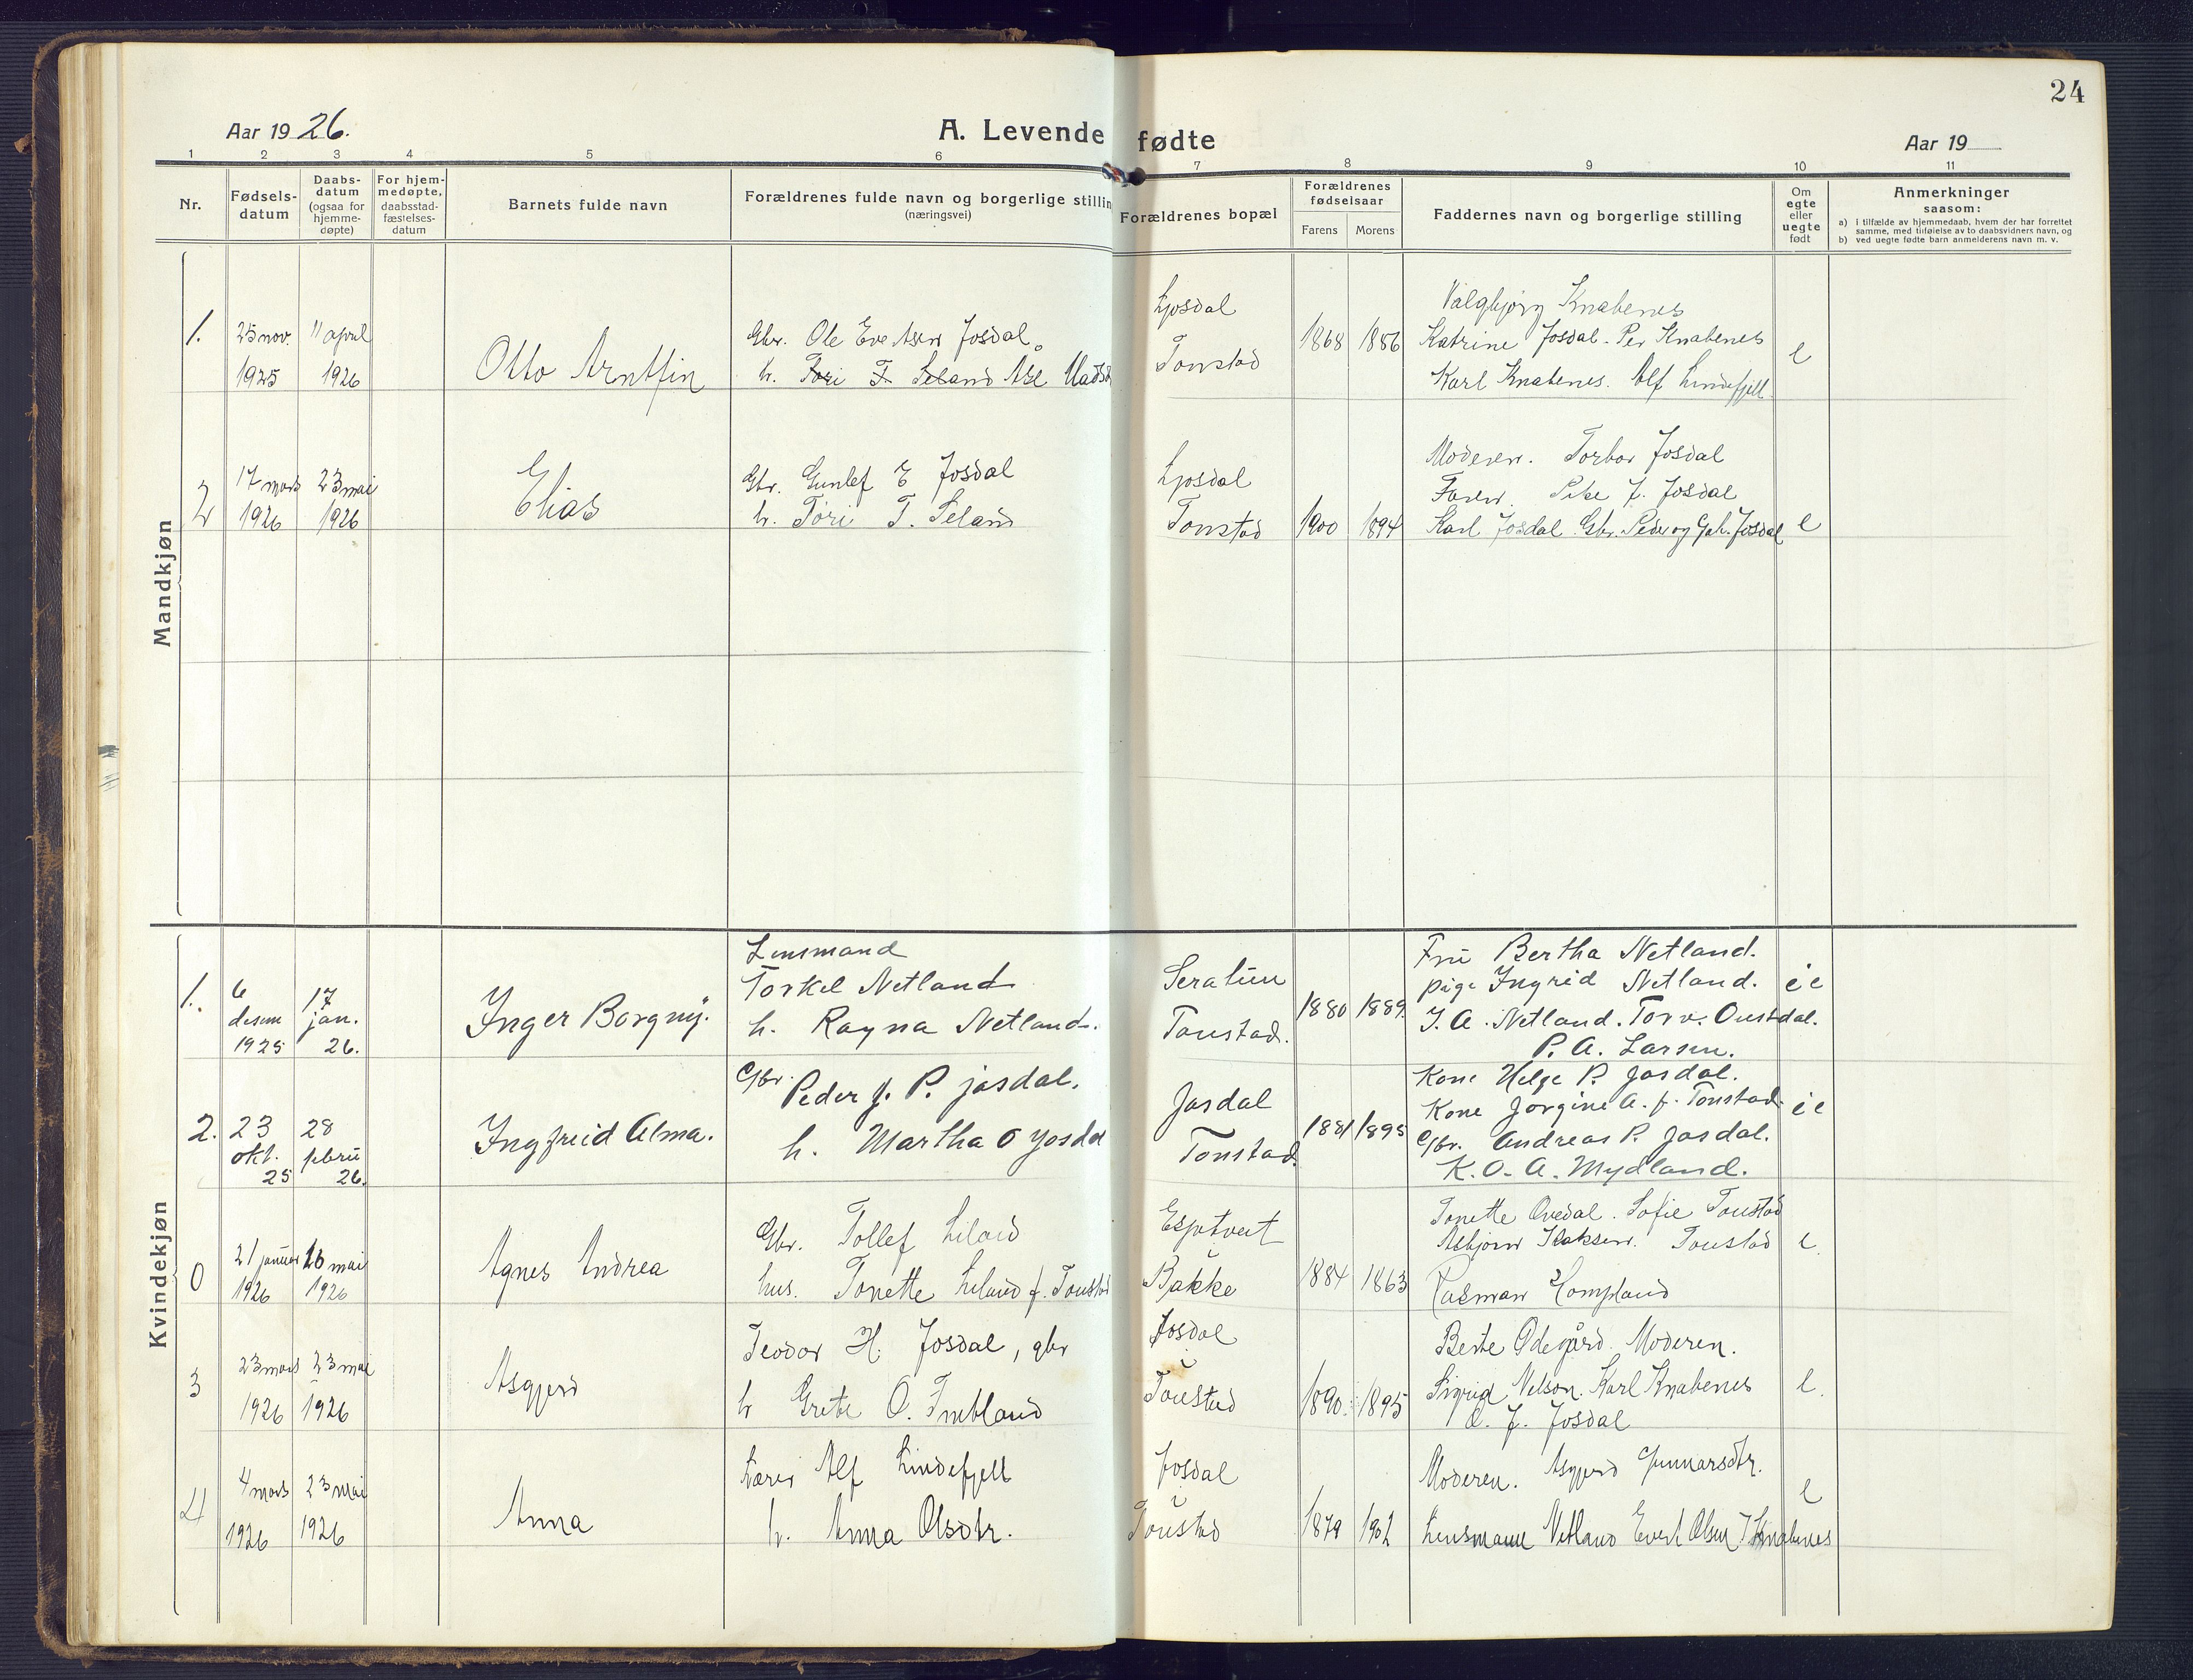 24
Aar 1926.
A. Levende fødte
Aar 19
1 2 3 4 5 6 7 8 9 10 11
Nr.
Fødselsdatum
Daabsdatum (ogsaa for hjemmedøpte)
For hjemmedøpte, daabsstadfæstelsesdatum
Barnets fulde navn
Forældrenes fulde navn og borgerlige stillin
(næringsvei)
Forældrenes bopæl
Forældrenes fødselsaar
Farens Morens
Faddernes navn og borgerlige stilling
Om egte eller uegte født
Anmerkninger
saasom:
a) i tilfælde av hjemmedaab, hvem der har forrettet
samme, med tilføielse av to daabsvidners navn, og
b) ved uegte fødte barn anmelderens navn m. v.
Mandkjøn
1.
25 nov. 1925
11 april 1926
Otto Arntfin
Gbr. Ole Evertsen Josdal.
h. Tori T Seland Åse
Ljosdal
Tonstad
1868 1886
Valgbjørg Knabenes
Katrine Josdal - Per Knabenes
Karl Knabenes. Alf Lindefjell
e
2
17 mars 1926
23 mai 1926
Elias
Gbr. Gunlef E Josdal
h. Tori T. Seland
Ljosdal
Tonstad
1900 1894
Moderen. Torbor Josdal
Faren. J. Josdal
Karl Josdal. Gbr. Peder og Josdal
e
Kvindekjøn
1.
6 desem 1925
17 jan. 26.
Inger Borgny.
Lensmand
Torkel Netland
h. Ragna Netland.
Seratun
Tonstad.
1880 1889.
Fru Bertha Netland.
pige Ingrid Netland.
J. A. Netland. Torv. Oustdal.
P. A. Larsen.
e
2.
23 okt. 25
28 febru 26.
Ingfreid Alma.
Gbr. Peder J. P. josdal.
h. Martha O yosdal
Josdal
Tonstad.
1881 1895
Kone Helge P. Josdal.
Kone Jorgine A. f. Tonstad
Gbr. Andreas P. Josdal.
K. O. A. Mydland.
e
0
21 januar 1926
16 mai 1926
Agnes Andrea
Gbr. Tollef Liland
hus. Tonette Liland f. Tonstad
Espetveit
Bakke
1884 1863
Tonette Ovedal. Sofie Tonstad
Asbjørn Isaksen. Tonstad
Rasman Hompland
e.
3
23 mars 1926
23 mai 1926
Asgjerd
Teodor H. Josdal, gbr
h Grete O. Fintland
Josdal
Tonstad
1890. 1895
Berte Ødegård. Moderen.
Sigrid Nelson. Karl Knabenes
O. J. Josdal
e.
4
4 mars 1926
23 mai 1926
Anna
Lærer Alf Lindefjell
h. Anna Olsdtr.
Josdal
Tonstad
1879 1902
Moderen. Asgjerd Gunnarsdtr.
Lensmann Netland Evert Olsen J Knabenes
e